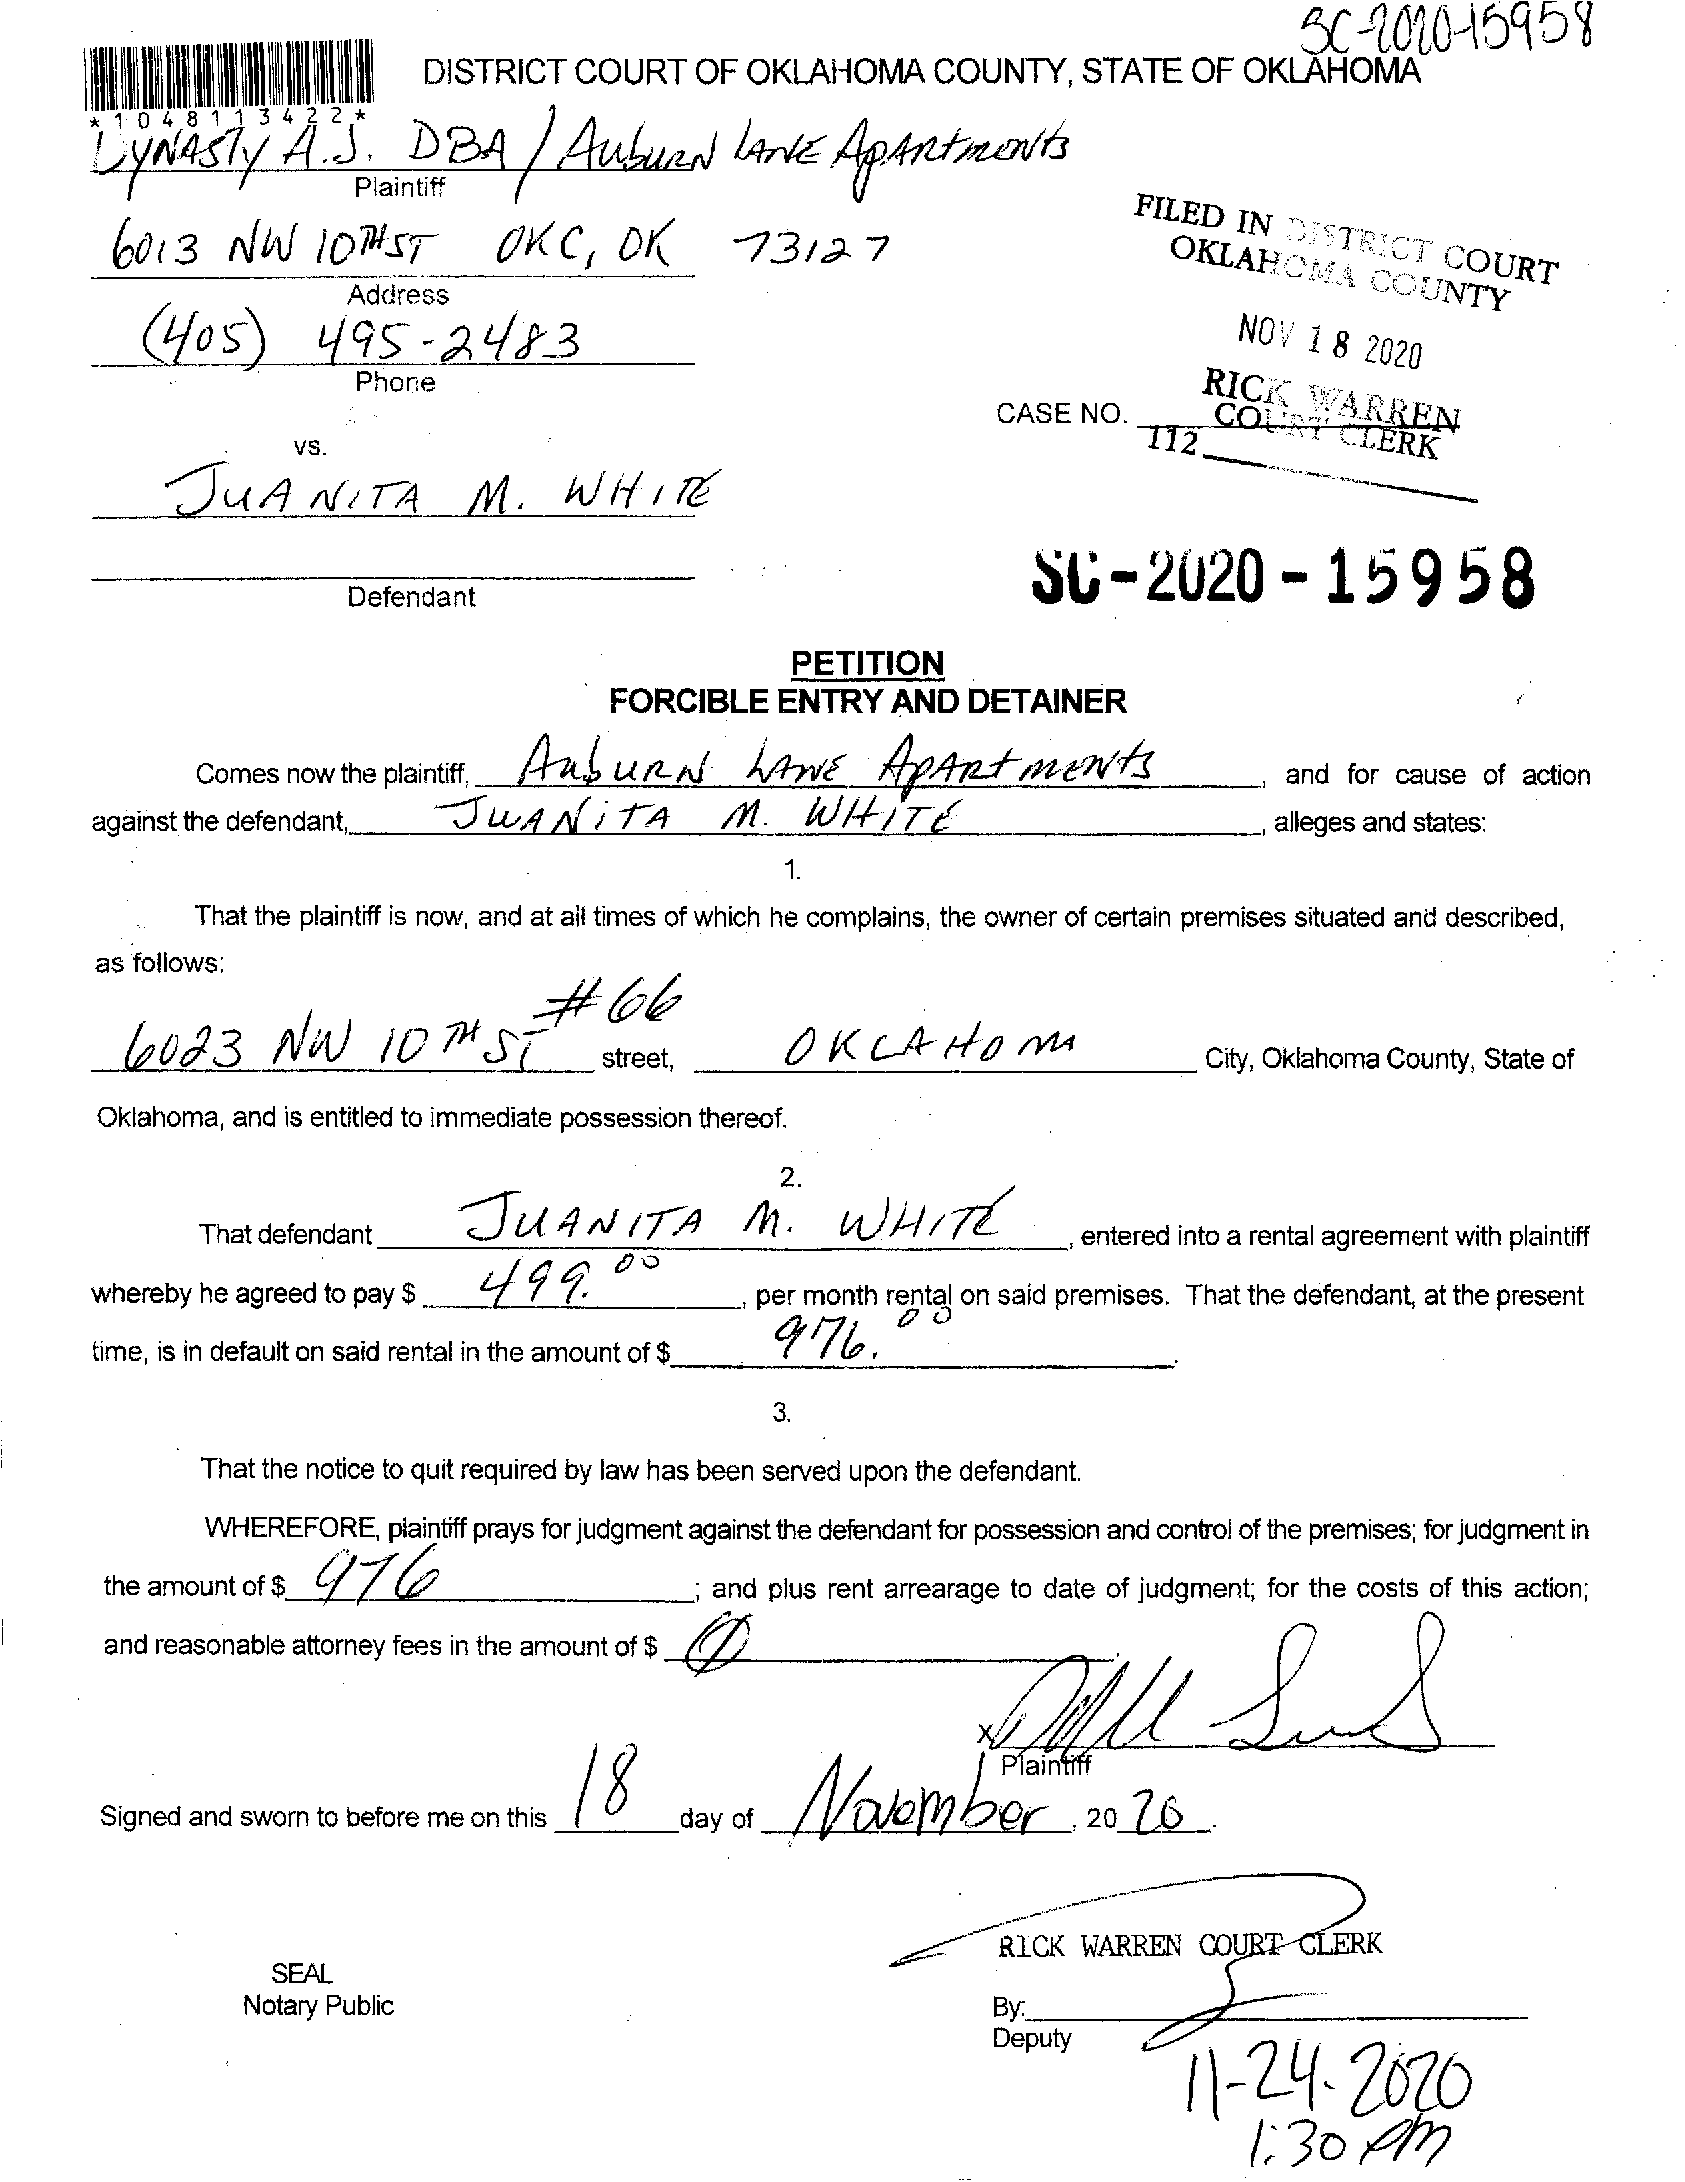 SC-2020-15958
DISTRICT COURT OF OKLAHOMA COUNTY, STATE OF OKLAHOMA
*1048113422*
DYNASTY A.J. DBA / AuburN LANE ApARtmeNts
Plaintiff
6013 NW 10TH ST OKC, OK 73127
Address
(405) 495-2483
Phone
FILED IN DISTRICT COURT
OKLAHOMA COUNTY
NOV 18 2020
RICK WARREN
COURT CLERK
CASE NO.
112
vs.
JUANITA M. WHITE
Defendant
SC-2020-15958
PETITION
FORCIBLE ENTRY AND DETAINER
Comes now the plaintiff, AubURN LANE ApARtmeNts, and for cause of action
against the defendant, JUANITA M. WHITE, alleges and states:
1.
That the plaintiff is now, and at all times of which he complains, the owner of certain premises situated and described,
as follows:
#66
6023 NW 10TH ST street, OKLAHOMA City, Oklahoma County, State of
Oklahoma, and is entitled to immediate possession thereof.
2.
That defendant JUANITA M. WHITE, entered into a rental agreement with plaintiff
whereby he agreed to pay $ 499.00, per month rental on said premises. That the defendant, at the present
time, is in default on said rental in the amount of $ 976.00.
3.
That the notice to quit required by law has been served upon the defendant.
WHEREFORE, plaintiff prays for judgment against the defendant for possession and control of the premises; for judgment in
the amount of $ 976; and plus rent arrearage to date of judgment; for the costs of this action;
and reasonable attorney fees in the amount of $ 0.
x
Plaintiff
Signed and sworn to before me on this 18 day of November, 2020.
RICK WARREN COURT CLERK
SEAL
Notary Public
By:
Deputy
11-24-2020
1:30 PM